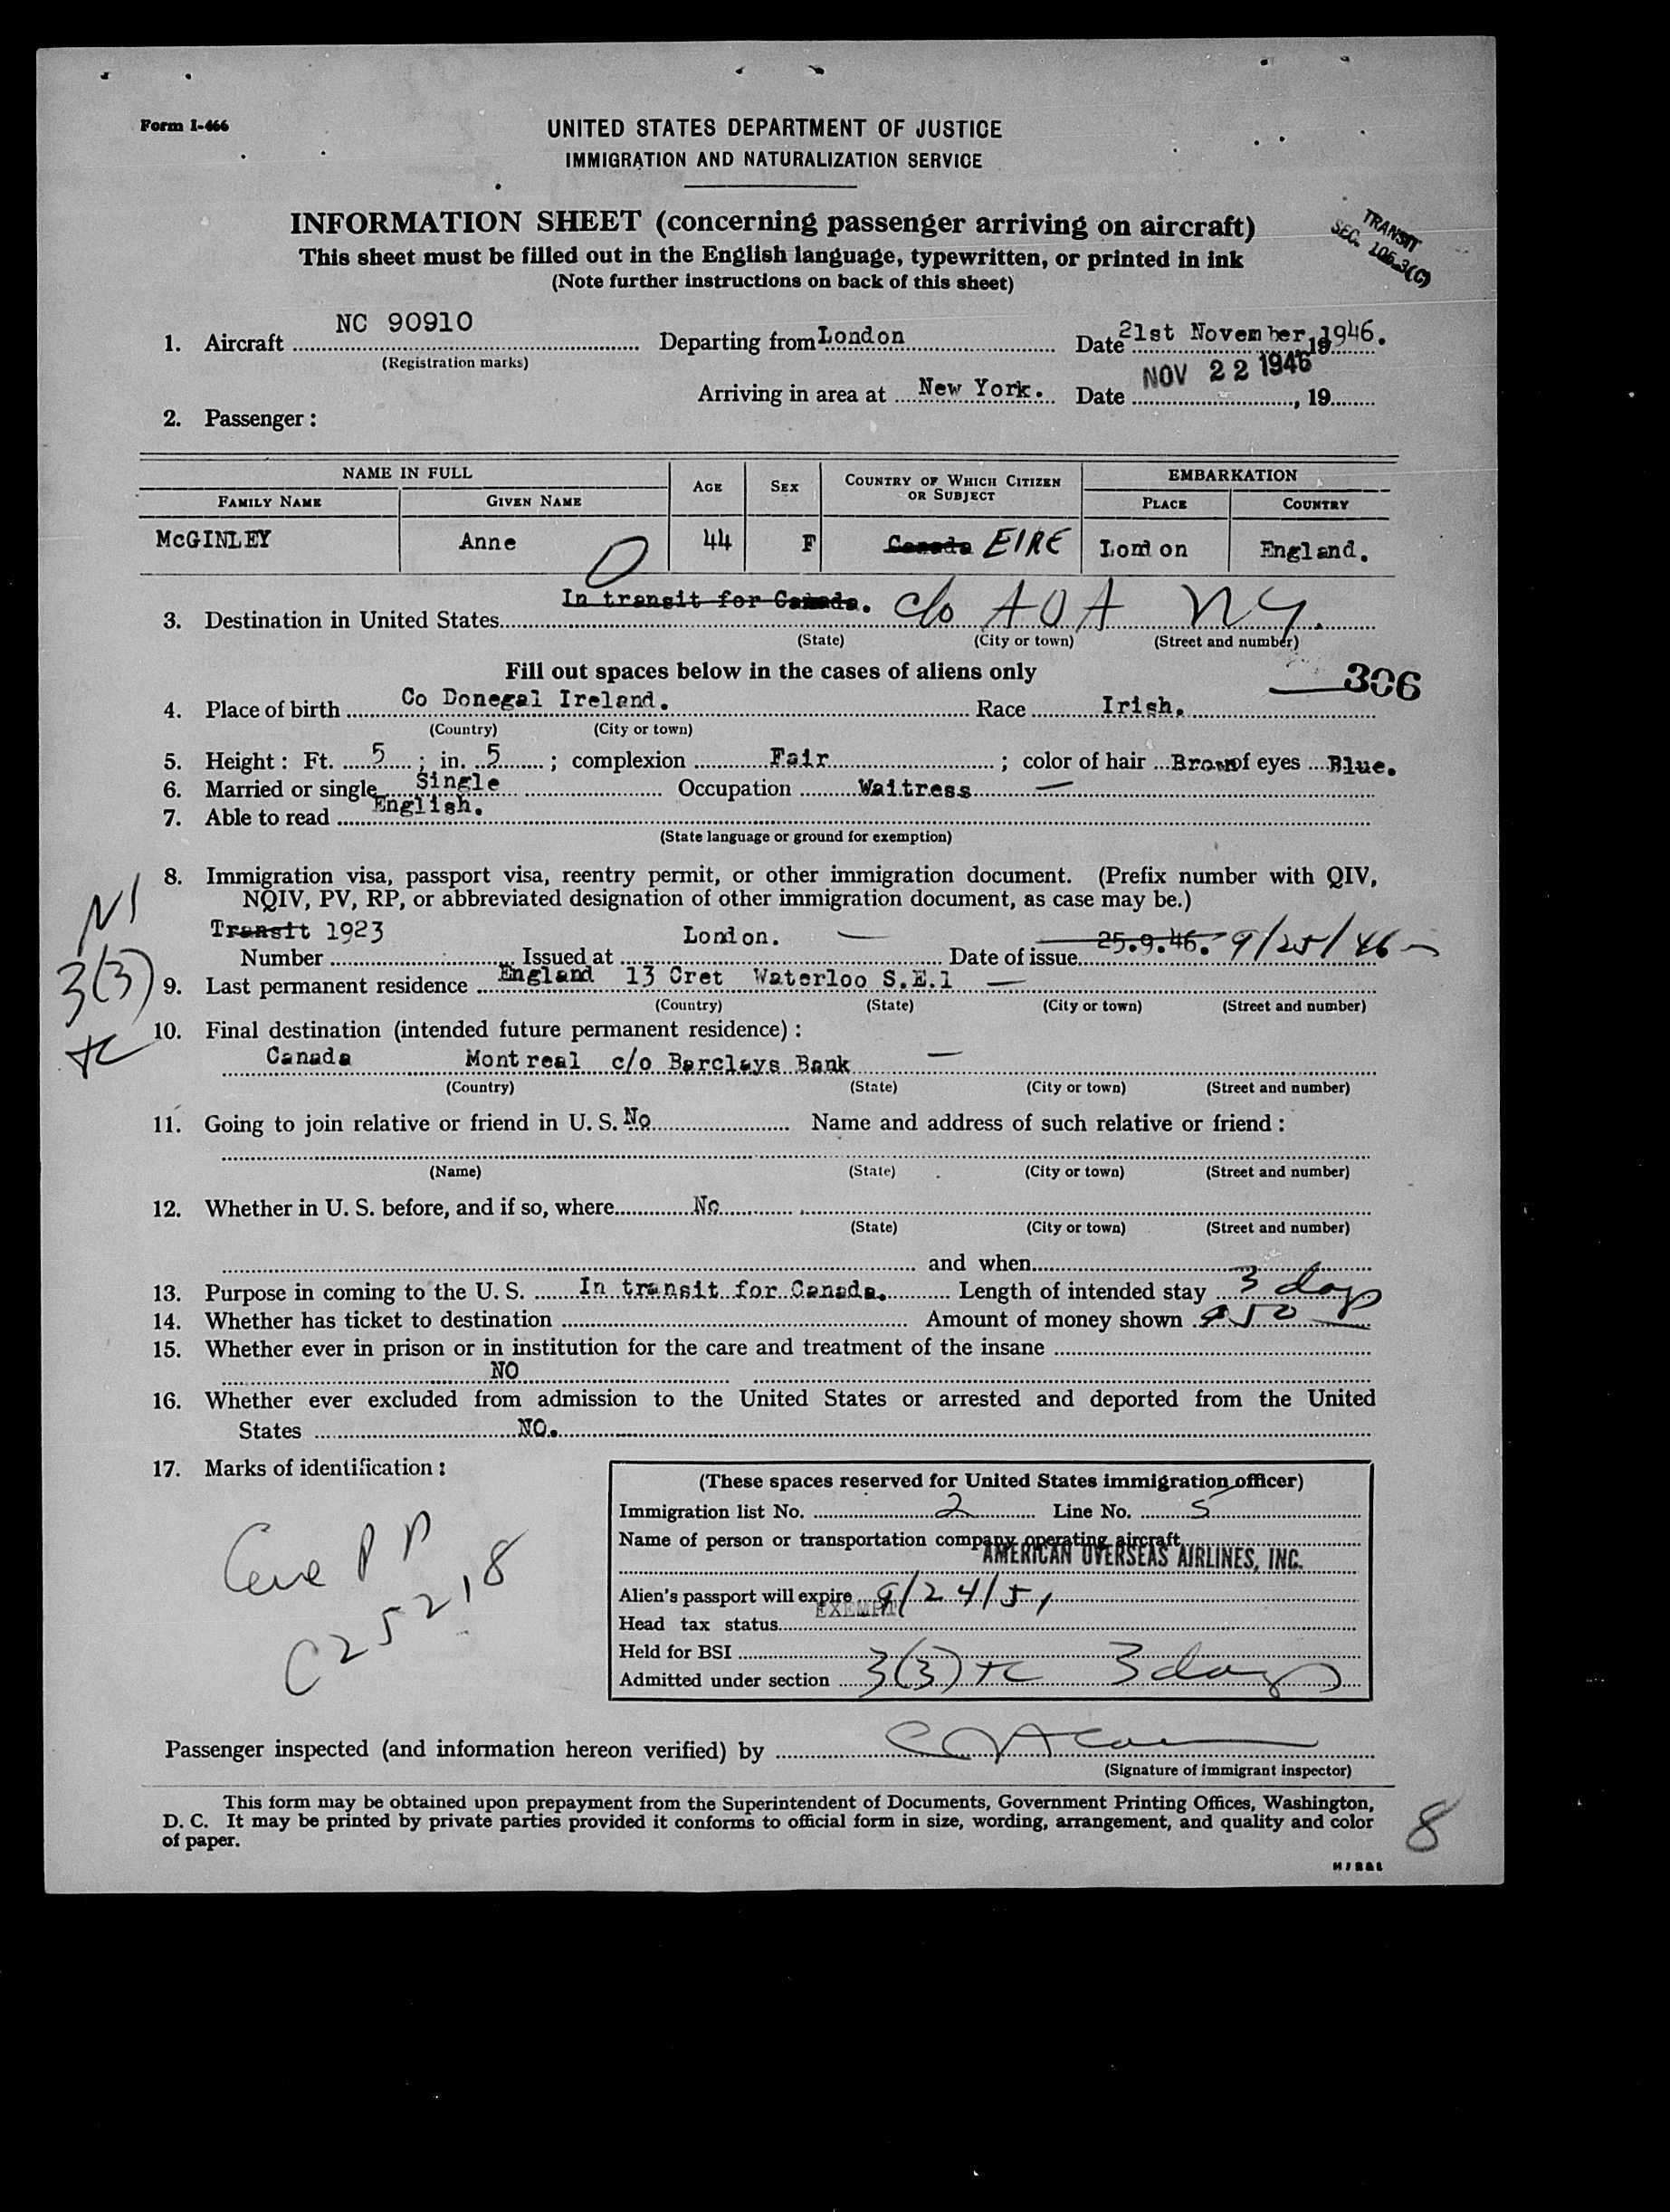 Form I-466
UNITED STATES DEPARTMENT OF JUSTICE
IMMIGRATION AND NATURALIZATION SERVICE
INFORMATION SHEET (concerning passenger arriving on aircraft)
This sheet must be filled out in the English language, typewritten, or printed in ink
(Note further instructions on back of this sheet)
TRANSIT
SEC. 105.3(C)
1. Aircraft NC 90910 Departing from London Date 21st November, 1946.
(Registration marks)
Arriving in area at New York. Date NOV 22 1946, 19
2. Passenger:
NAME IN FULL AGE SEX COUNTRY OF WHICH CITIZEN OR SUBJECT EMBARKATION
FAMILY NAME GIVEN NAME PLACE COUNTRY
McGINLEY Anne 44 F Canada EIRE London England.
In transit for Canada. c/o AOA NY.
3. Destination in United States
(State) (City or town) (Street and number)
Fill out spaces below in the cases of aliens only
306
4. Place of birth Co Donegal Ireland. Race Irish.
(Country) (City or town)
5. Height: Ft. 5; in. 5; complexion Fair; color of hair Brown of eyes Blue.
6. Married or single Single Occupation Waitress
7. Able to read English.
(State language or ground for exemption)
8. Immigration visa, passport visa, reentry permit, or other immigration document. (Prefix number with QIV,
NQIV, PV, RP, or abbreviated designation of other immigration document, as case may be.)
Transit 1923 London. 25.9.46. 9/25/46
Number Issued at Date of issue
3(3)
9. Last permanent residence England 13 Cret Waterloo S.E.1
(Country) (State) (City or town) (Street and number)
10. Final destination (intended future permanent residence):
Canada Montreal c/o Barclays Bank
(Country) (State) (City or town) (Street and number)
11. Going to join relative or friend in U. S. No Name and address of such relative or friend:
(Name) (State) (City or town) (Street and number)
12. Whether in U. S. before, and if so, where No
(State) (City or town) (Street and number)
and when
13. Purpose in coming to the U. S. In transit for Canada. Length of intended stay 3 days
14. Whether has ticket to destination Amount of money shown $50
15. Whether ever in prison or in institution for the care and treatment of the insane
NO
16. Whether ever excluded from admission to the United States or arrested and deported from the United
States NO.
17. Marks of identification:
PP
C25218
(These spaces reserved for United States immigration officer)
Immigration list No. 2 Line No. 5
Name of person or transportation company operating aircraft
AMERICAN OVERSEAS AIRLINES, INC.
Alien's passport will expire 9/24/51
EXEMPT
Head tax status
Held for BSI
Admitted under section 3(3) 3 days
Passenger inspected (and information hereon verified) by
(Signature of immigrant inspector)
This form may be obtained upon prepayment from the Superintendent of Documents, Government Printing Offices, Washington,
D. C. It may be printed by private parties provided it conforms to official form in size, wording, arrangement, and quality and color
of paper.
8